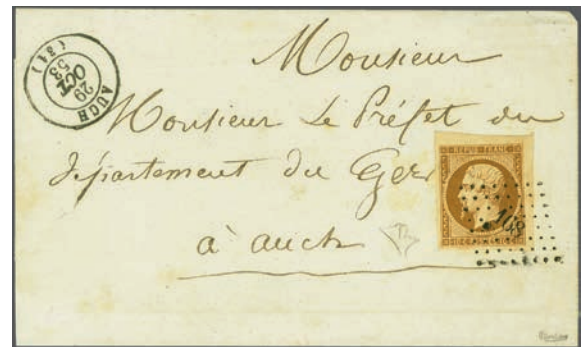 AUCH
29
OCT
53
(31)
Monsieur
Monsieur Le Préfet du
département du Gers
à auch
REPUB. FRANC.
168